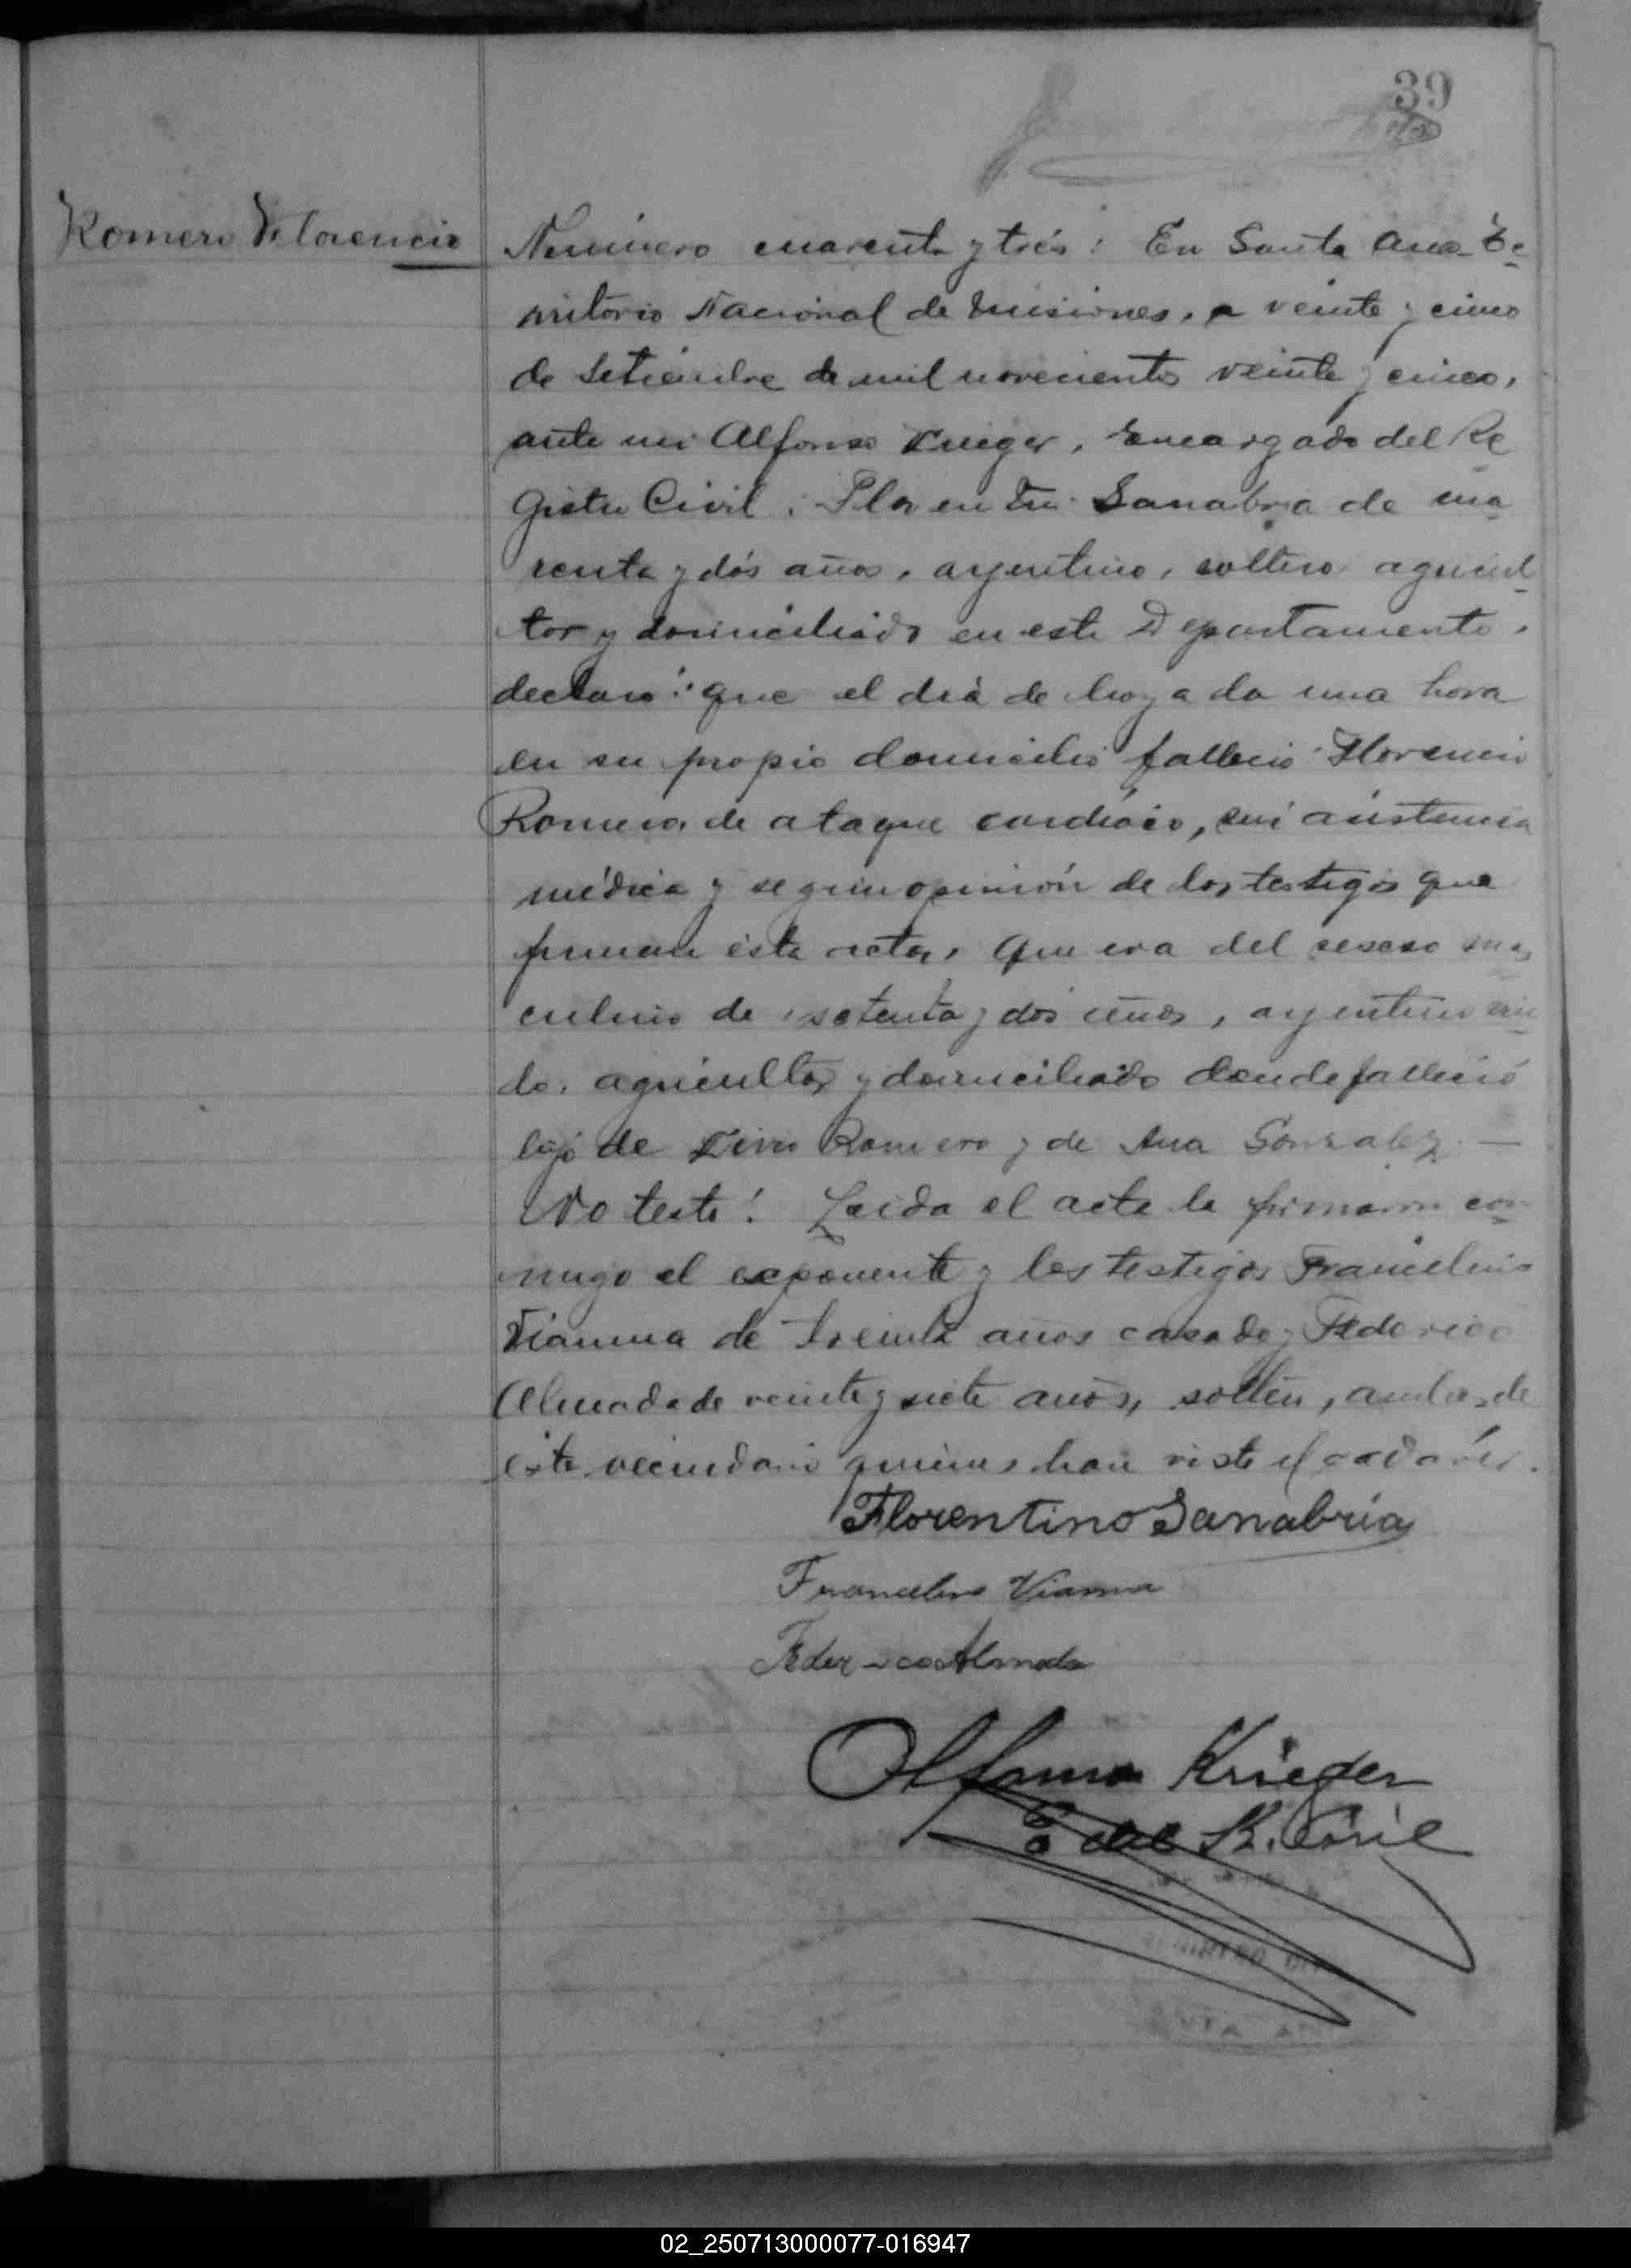 39
Romero Florencio
Número cuarenta y trés: En Santa Ana Te
rritorio Nacional de Misiones, a veinte y cinco
de Setiembre de mil novecientos veinte y cinco,
ante mi Alfonso Krieger, Encargado del Re
gistro Civil, Florentin Sanabria de cua
renta y dós años, argentino, soltero agricul
tor y domiciliado en este Departamento,
declaro: que el dia de hoy a la una hora
en su propio domicilio fallecio Florencio
Romero, de ataque cardíaco, sin asistencia
médica y segun opinión de los testigos que
firman ésta acta, que era del sexso mas
culino de setenta y dos años, argentino viu
do, agricultor y domiciliado donde falleció
hijo de Livio Romero y de Ana Gonzalez. —
No testó! Leida el acta la firmaron con
migo el exponente y los testigos Francelino
Vianna de treinta años casado y Federico
Almada de veinte y siete años, soltero, ambos de
éste vecindario quienes han visto el cadáver.
Florentino Sanabria
Francelino Vianna
Federico Almada
Alfonso Krieger
E del R. Civil
02_250713000077-016947